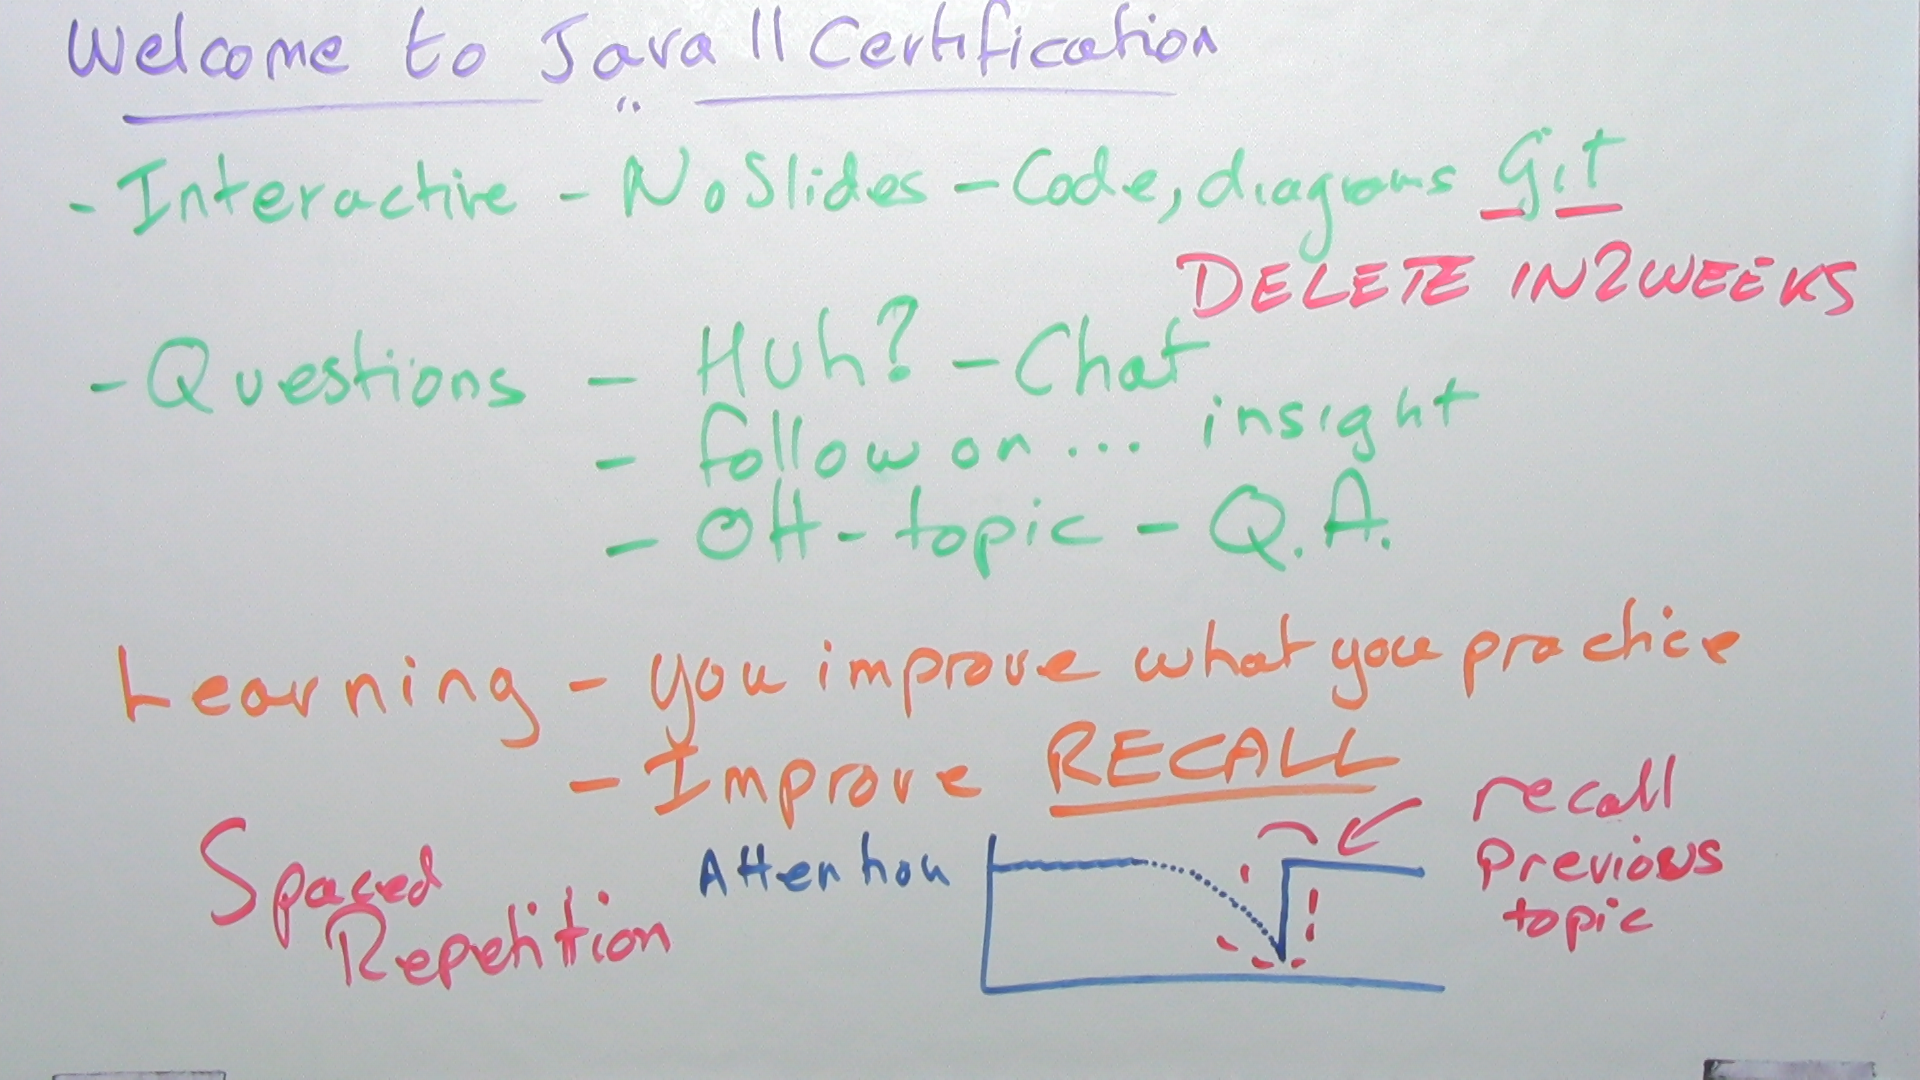 Welcome to Java 11 Certification
- Interactive - No Slides - Code, diagrams Git
DELETE IN 2 WEEKS
- Questions - Huh? - Chat
- follow on ... insight
- Off-topic - Q.A.
Learning - you improve what you practice
- Improve RECALL
Spaced
Repetition
Attention
recall
previous
topic